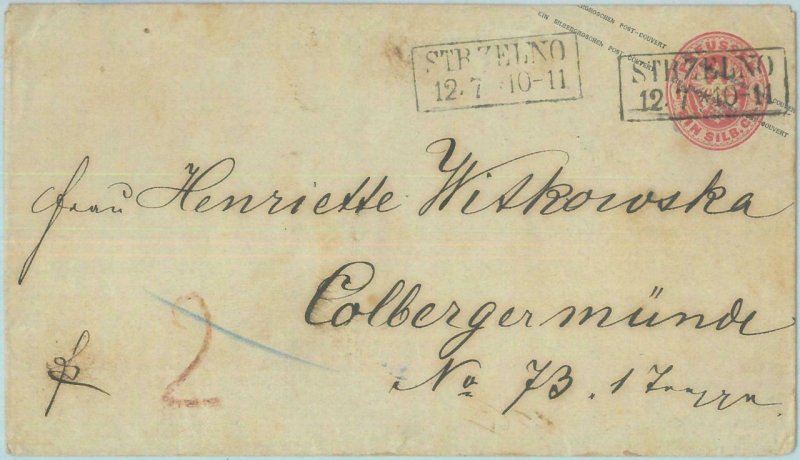 EIN SILBERGROSCHEN POST-COUVERT
STRZELNO
12. 7 *10-11
STRZELNO
12. 7 *10-11
EIN SILB. GR.
Frau Henriette Witkowska
Colbergermünde
No 73. 1 Treppe.
2